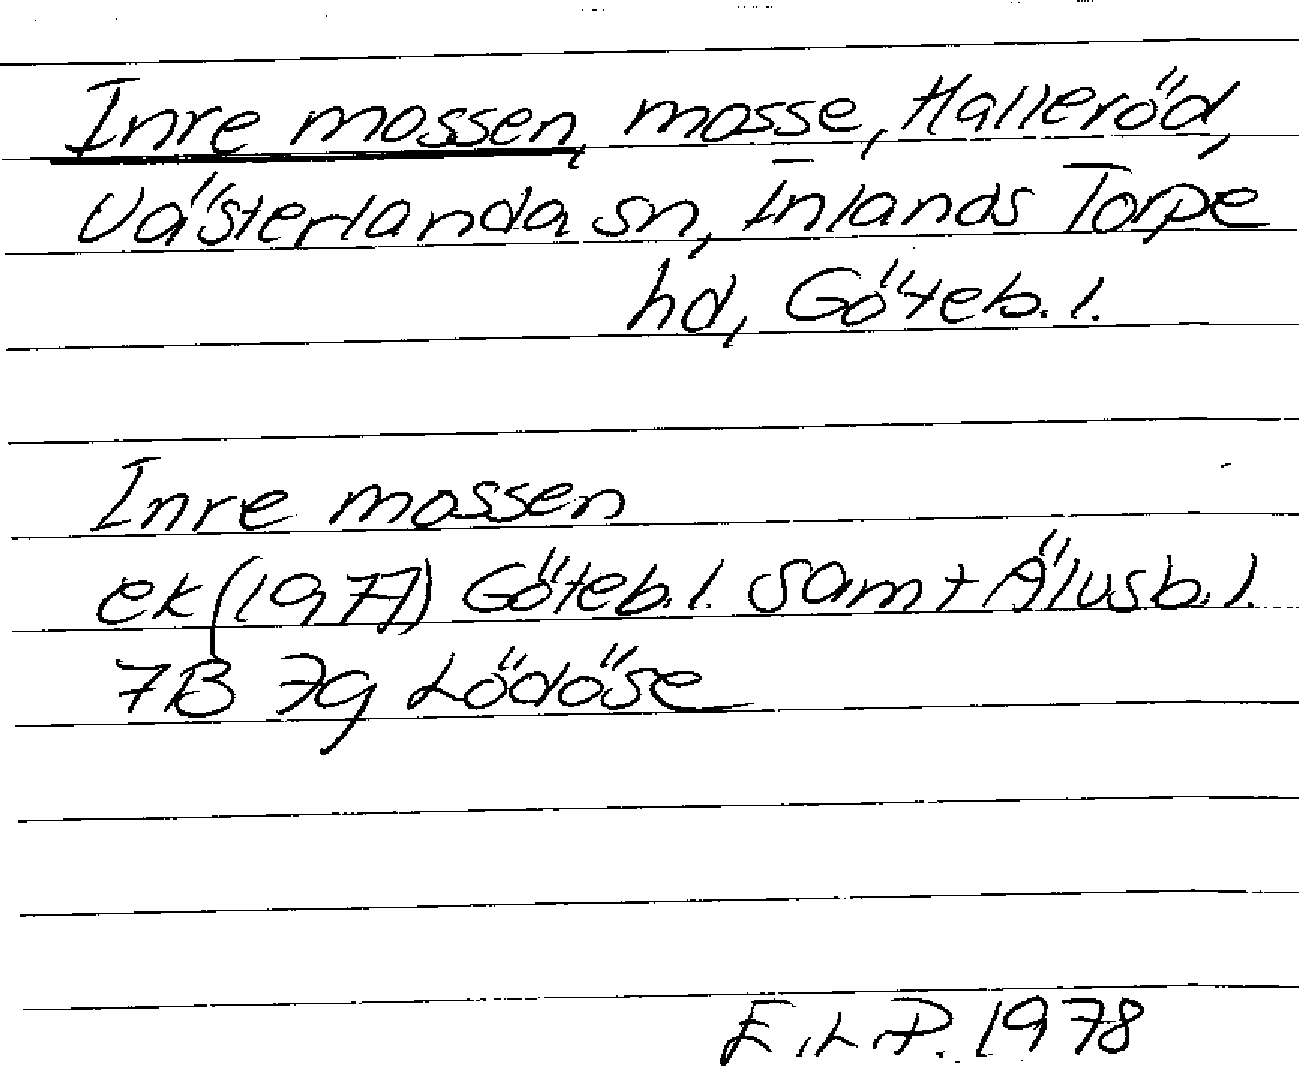 Inre mossen, mosse, Halleröd,
Västerlanda sn, Inlands Torpe
hd, Göteb. l.
Inre mossen
ek (1977) Göteb. l. samt Älvsb. l.
7B 7g Lödöse
E.L.P. 1978